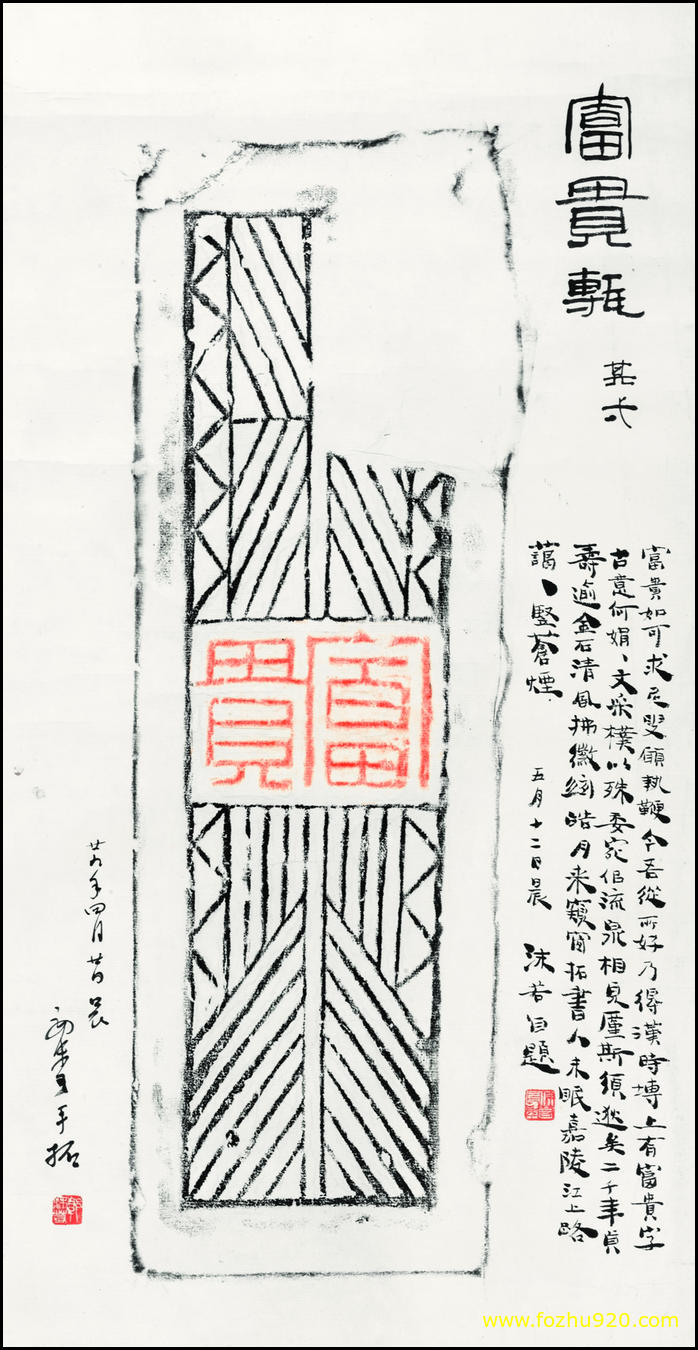 富貴甎
其弍
富貴如可求尼叟願執鞭今吾從所好乃得漢時塼上有富貴字
古意何娟、文采樸以殊委宛佀流泉相見廑斯須逖矣二千年貞
壽逾金石清風拂徽絃皓月来窺窗拓書人未眠嘉陵江上路
藹、豎蒼煙
五月十二日晨 沫若自題
富貴
年四月 晨
手拓
www.fozhu920.com